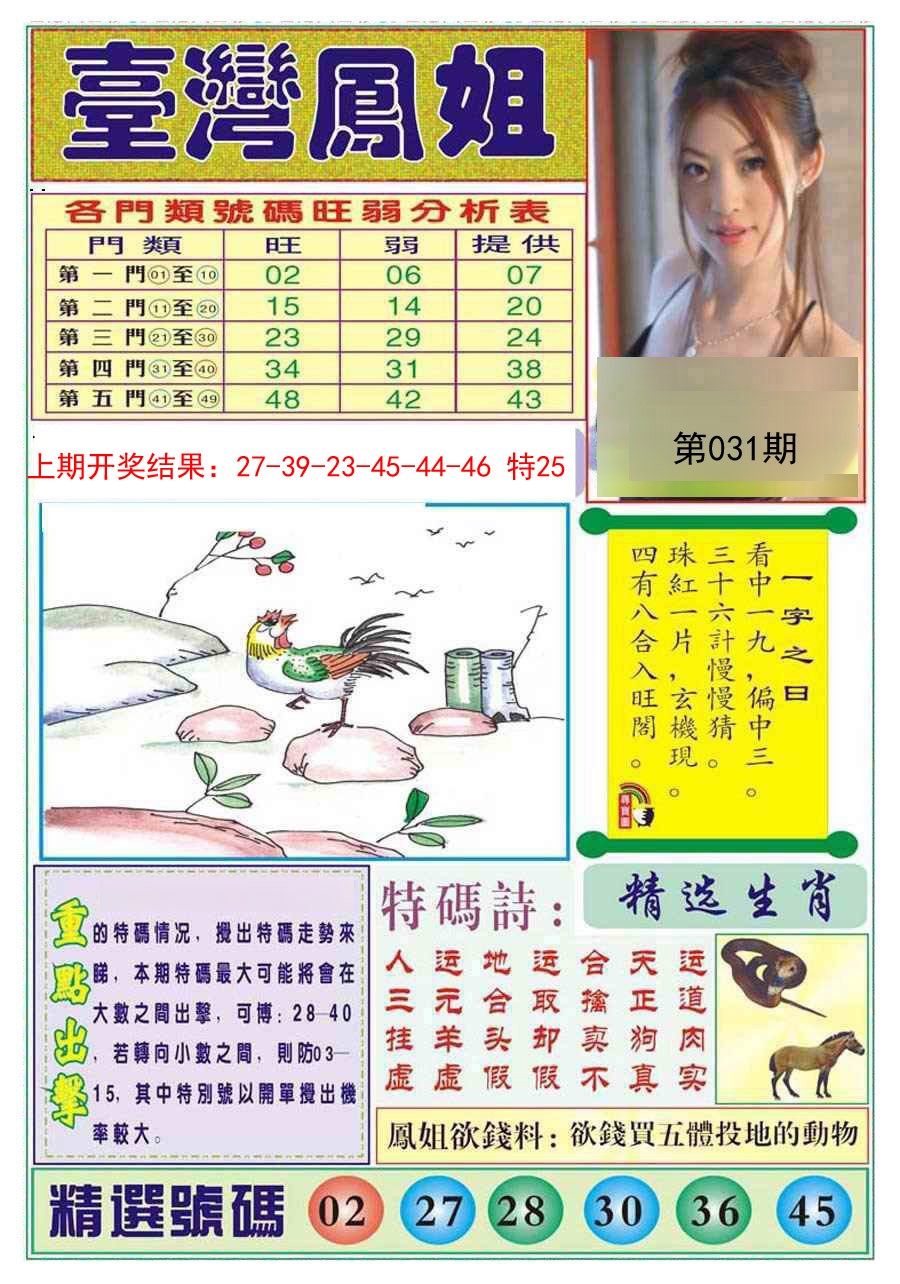 臺灣鳳姐
各門類號碼旺弱分析表
門類 旺 弱 提供
第一門01至10 02 06 07
第二門11至20 15 14 20
第三門21至30 23 29 24
第四門31至40 34 31 38
第五門41至49 48 42 43
第031期
上期开奖结果：27-39-23-45-44-46 特25
一字之曰
看中一九，偏中三。
三十六計慢慢猜。
珠紅一片，玄機現。
四有八合入旺閣。
尋寶圖
重點出擊
的特碼情况，攪出特碼走勢來
睇，本期特碼最大可能將會在
大數之間出擊，可博：28—40
，若轉向小數之間，則防03—
15，其中特別號以開單攪出機
率較大。
特碼詩：
人运地运合天运
三元合取擒正道
挂羊头却卖狗肉
虚虚假假不真实
精选生肖
鳳姐欲錢料：欲錢買五體投地的動物
精選號碼 02 27 28 30 36 45